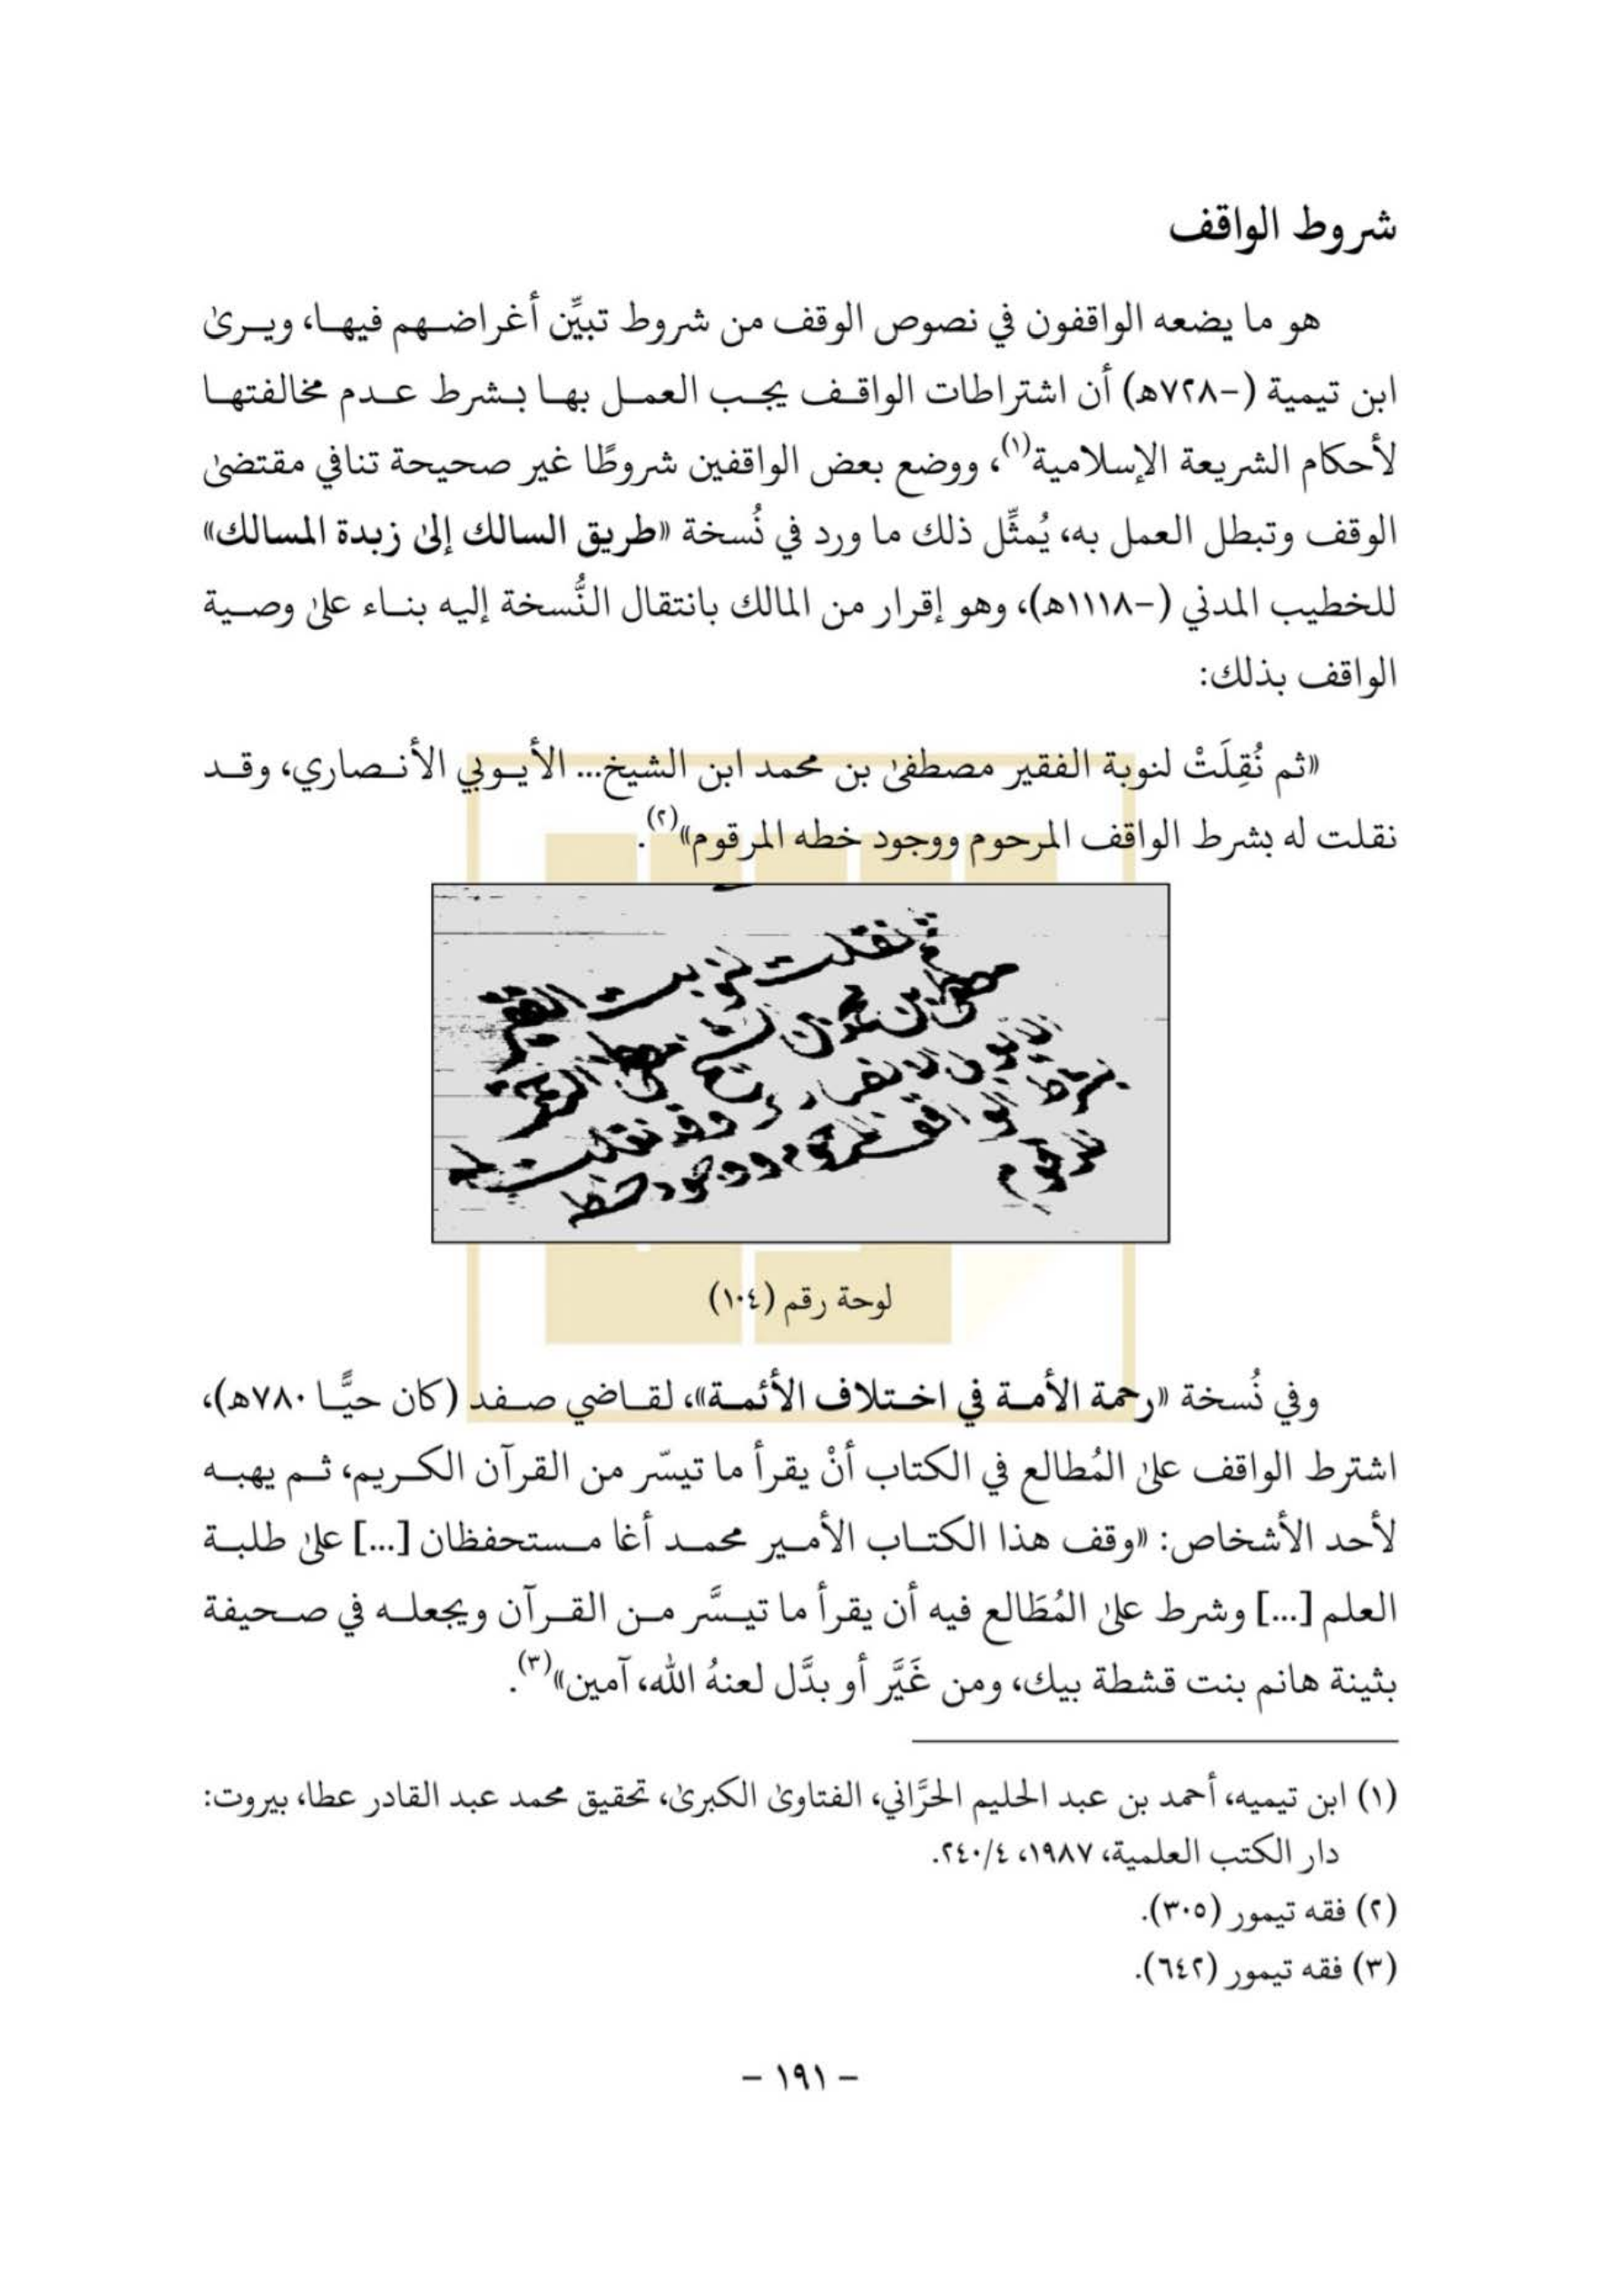 شروط الواقف
هو ما يضعه الواقفون في نصوص الوقف من شروط تبيِّن أغراضهم فيها، ويرىٰ
ابن تيمية (-٧٢٨هـ) أن اشتراطات الواقف يجب العمل بها بشرط عدم مخالفتها
لأحكام الشريعة الإسلامية(١)، ووضع بعض الواقفين شروطًا غير صحيحة تنافي مقتضىٰ
الوقف وتبطل العمل به، يُمثِّل ذلك ما ورد في نُسخة «طريق السالك إلىٰ زبدة المسالك»
للخطيب المدني (-١١١٨هـ)، وهو إقرار من المالك بانتقال النُّسخة إليه بناء علىٰ وصية
الواقف بذلك:
«ثم نُقِلَتْ لنوبة الفقير مصطفىٰ بن محمد ابن الشيخ... الأيوبي الأنصاري، وقد
نقلت له بشرط الواقف المرحوم ووجود خطه المرقوم»(٢).
ثم نقلت لنوبت الفقير
مصطفى بن محمد بن
وقد نقلت له
ووجود خط
لوحة رقم (١٠٤)
وفي نُسخة «رحمة الأمة في اختلاف الأئمة»، لقاضي صفد (كان حيًّا ٧٨٠هـ)،
اشترط الواقف علىٰ المُطالع في الكتاب أنْ يقرأ ما تيسّر من القرآن الكريم، ثم يهبه
لأحد الأشخاص: «وقف هذا الكتاب الأمير محمد أغا مستحفظان [...] علىٰ طلبة
العلم [...] وشرط علىٰ المُطَالع فيه أن يقرأ ما تيسَّر من القرآن ويجعله في صحيفة
بثينة هانم بنت قشطة بيك، ومن غَيَّر أو بدَّل لعنهُ الله، آمين»(٣).
(١) ابن تيميه، أحمد بن عبد الحليم الحرَّاني، الفتاوىٰ الكبرىٰ، تحقيق محمد عبد القادر عطا، بيروت:
دار الكتب العلمية، ١٩٨٧، ٤/‏٢٤٠.
(٢) فقه تيمور (٣٠٥).
(٣) فقه تيمور (٦٤٢).
- ١٩١ -